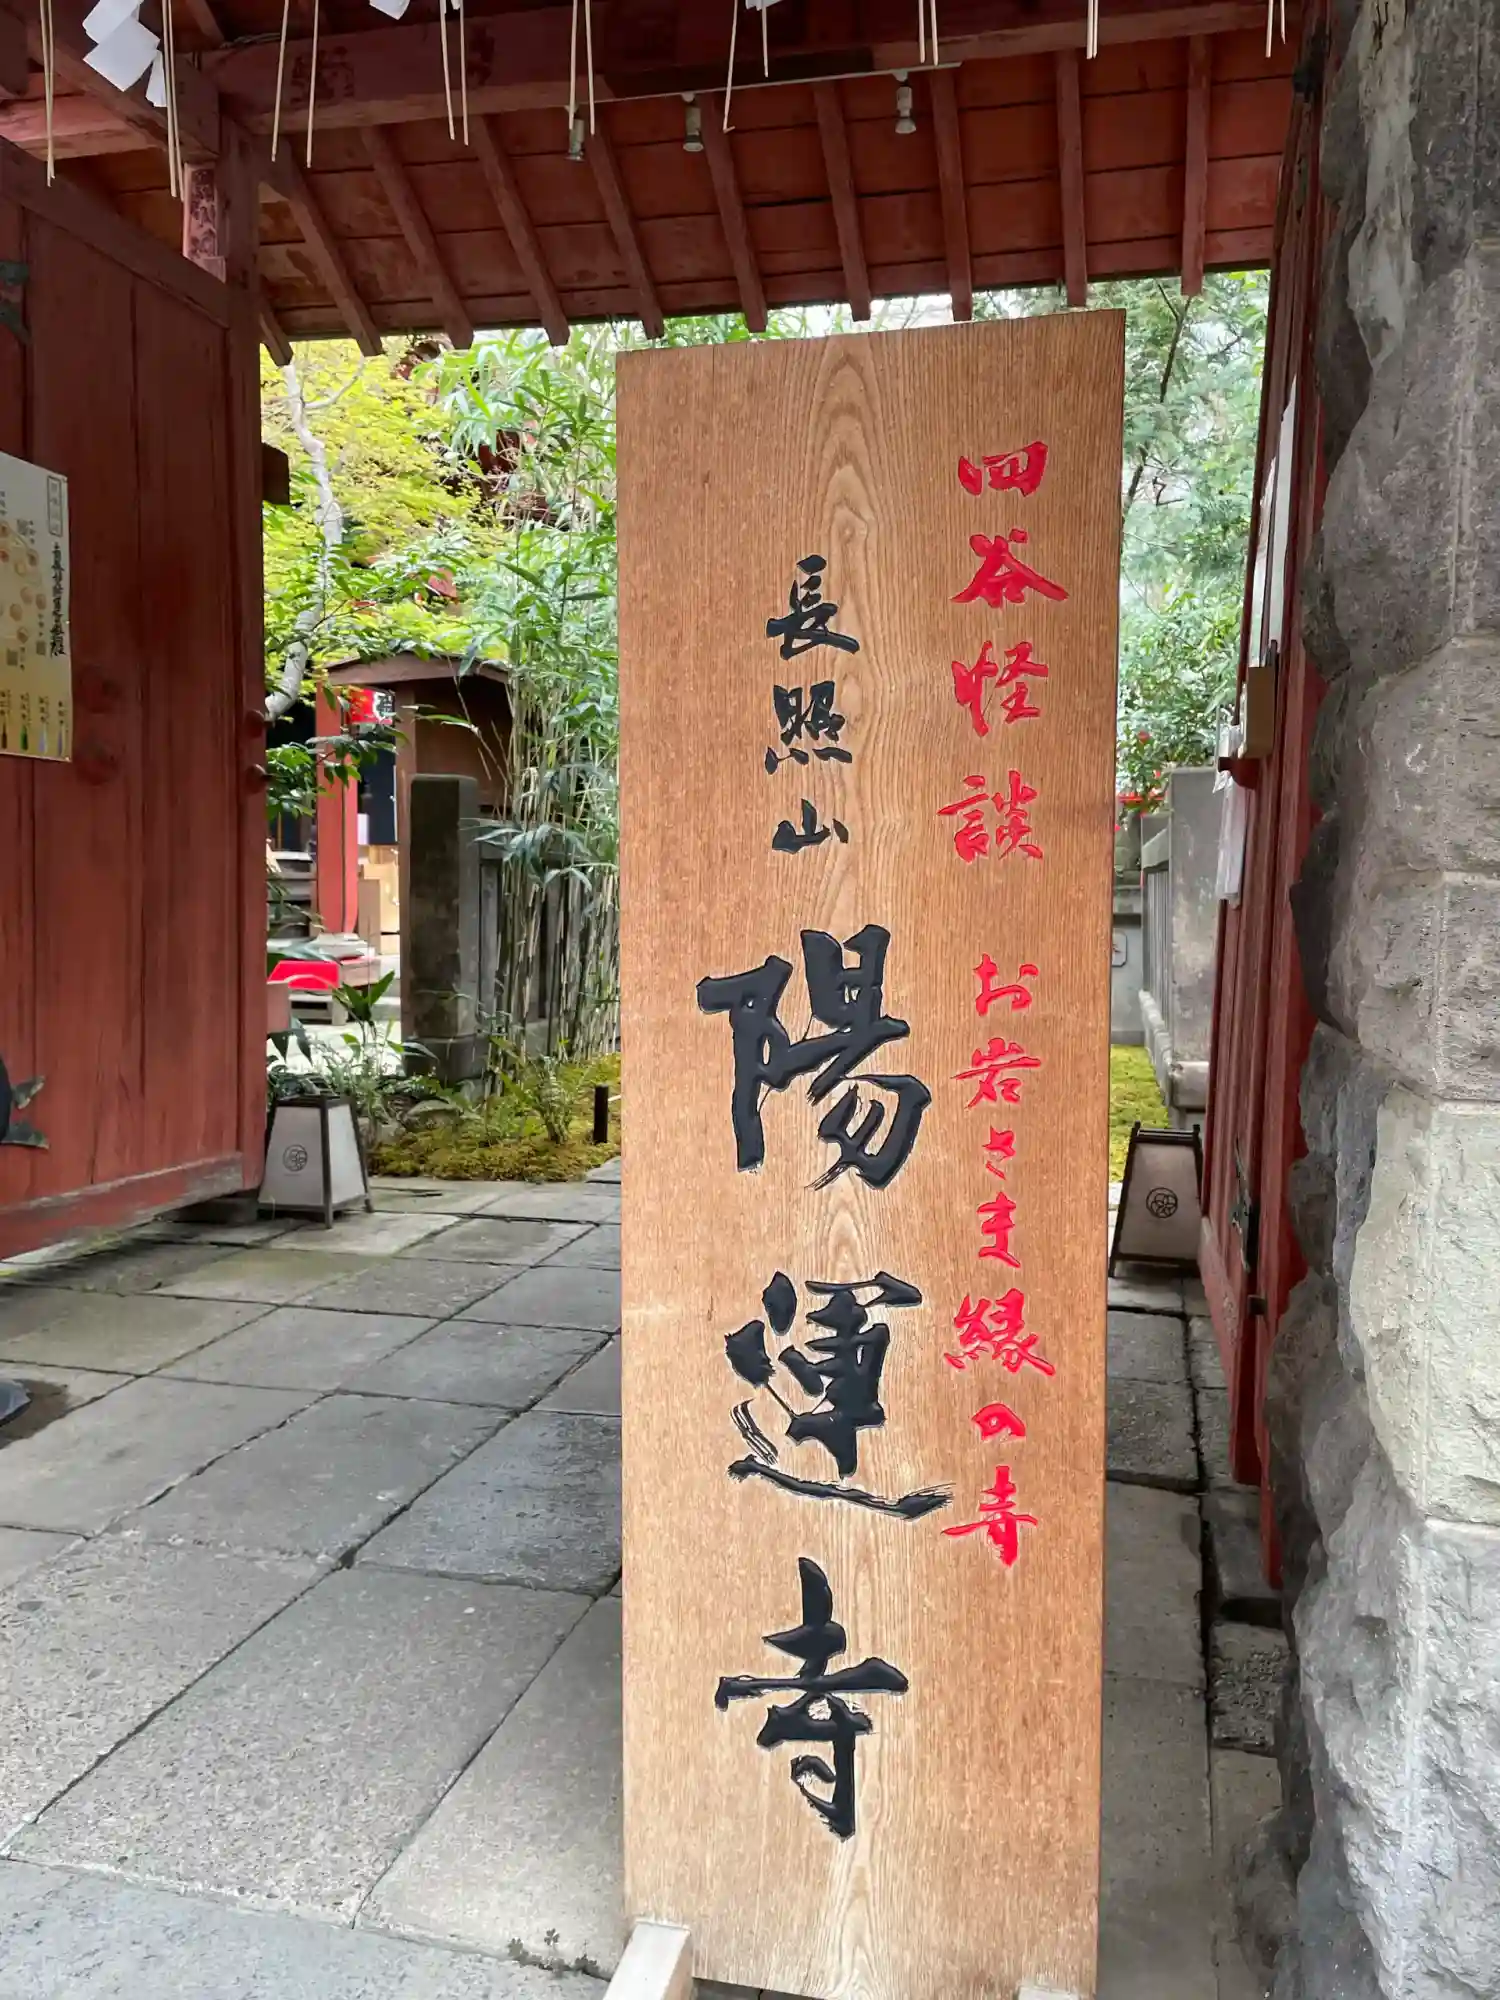 四谷怪談 お岩さま縁の寺
長照山 陽運寺